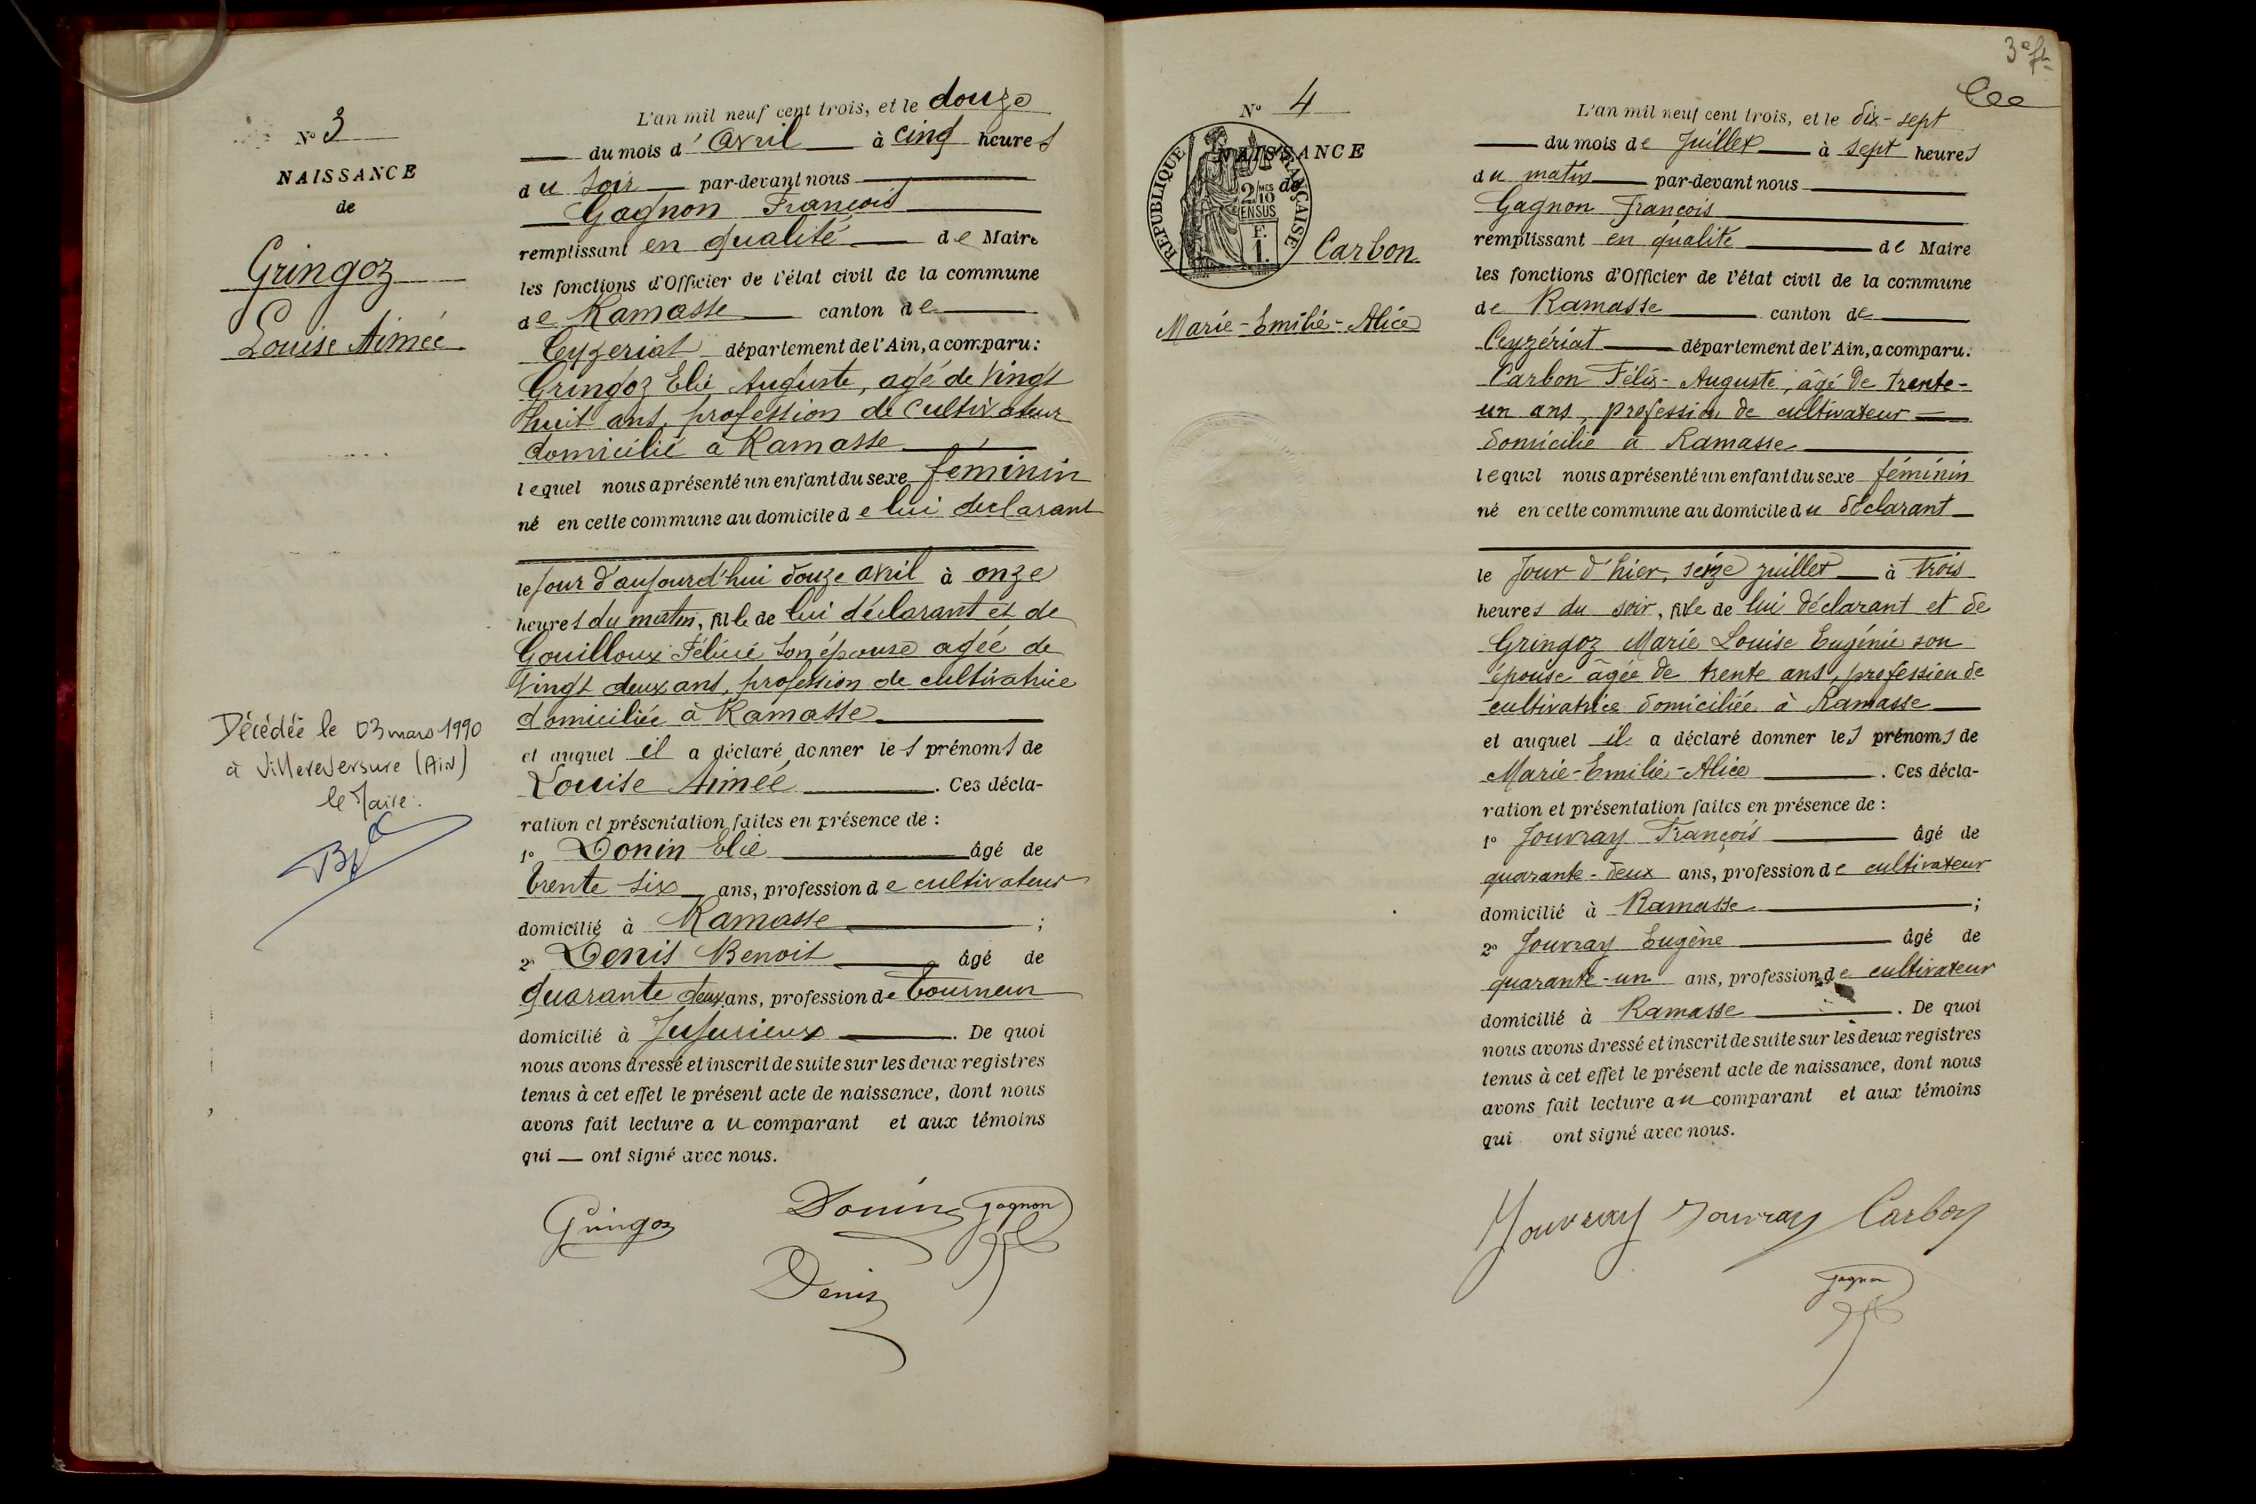 N° 3
NAISSANCE
de
Gringoz
Louise Aimée
Décédée le 03 mars 1990
à Villereversure (Ain)
le Maire :
L'an mil neuf cent trois, et le douze
du mois d'avril à cinq heures
du soir par-devant nous
Gagnon François
remplissant en qualité de Maire
les fonctions d'Officier de l'état civil de la commune
de Ramasse canton de
Ceyzeriat département de l'Ain, a comparu :
Gringoz Elie Auguste, agé de vingt
huit ans, profession de cultivateur
domicilié à Ramasse
lequel nous a présenté un enfant du sexe féminin
né en cette commune au domicile de lui declarant
le jour d'aujourd'hui douze avril à onze
heures du matin, fille de lui déclarant et de
Gouilloux Félicie son épouse agée de
vingt deux ans, profession de cultivatrice
domiciliée à Ramasse
et auquel il a déclaré donner les prénoms de
Louise Aimée. Ces décla-
ration et présentation faites en présence de :
1° Donin Elie âgé de
trente six ans, profession de cultivateur
domicilié à Ramasse ;
2° Denis Benoit âgé de
quarante deux ans, profession de tourneur
domicilié à Jujurieux. De quoi
nous avons dressé et inscrit de suite sur les deux registres
tenus à cet effet le présent acte de naissance, dont nous
avons fait lecture au comparant et aux témoins
qui — ont signé avec nous.
Gringoz Donin Gagnon
Denis
3e ft
N° 4
NAISSANCE
de
RÉPUBLIQUE FRANÇAISE
2/10 MES
EN SUS
F.
1.
Carbon
Marie-Emilie-Alice
L'an mil neuf cent trois, et le dix-sept
du mois de Juillet à sept heures
du matin par-devant nous
Gagnon François
remplissant en qualité de Maire
les fonctions d'Officier de l'état civil de la commune
de Ramasse canton de
Ceyzériat département de l'Ain, a comparu :
Carbon Félix-Auguste, âgé de trente-
un ans, profession de cultivateur
domicilié à Ramasse
lequel nous a présenté un enfant du sexe féminin
né en cette commune au domicile du déclarant
le jour d'hier, seize juillet à trois
heures du soir, fille de lui déclarant et de
Gringoz Marie Louise Eugénie son
épouse âgée de trente ans, profession de
cultivatrice domiciliée à Ramasse
et auquel il a déclaré donner les prénoms de
Marie-Emilie-Alice. Ces décla-
ration et présentation faites en présence de :
1° Jouvray François âgé de
quarante-deux ans, profession de cultivateur
domicilié à Ramasse ;
2° Jouvray Eugène âgé de
quarante-un ans, profession de cultivateur
domicilié à Ramasse. De quoi
nous avons dressé et inscrit de suite sur les deux registres
tenus à cet effet le présent acte de naissance, dont nous
avons fait lecture au comparant et aux témoins
qui ont signé avec nous.
Jouvray Jouvray Carbon
Gagnon